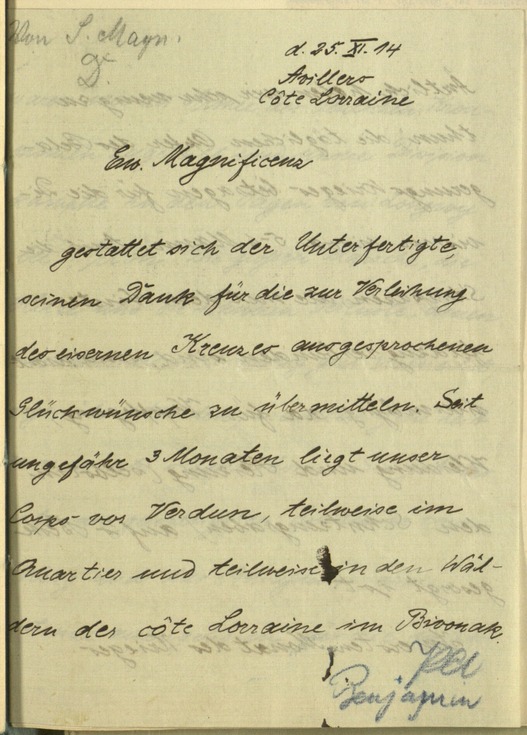 Von S. Magn.
d. 25. XI. 14
Avillers
Côte Lorraine
Ew. Magnificenz
gestattet sich der Unterfertigte,
seinen Dank für die zur Verleihung
des eisernen Kreuzes ausgesprochenen
Glückwünsche zu übermitteln. Seit
ungefähr 3 Monaten liegt unser
Corps vor Verdun, teilweise im
Quartier und teilweise in den Wäl-
dern des côte Lorraine im Bivouak.
Benjamin